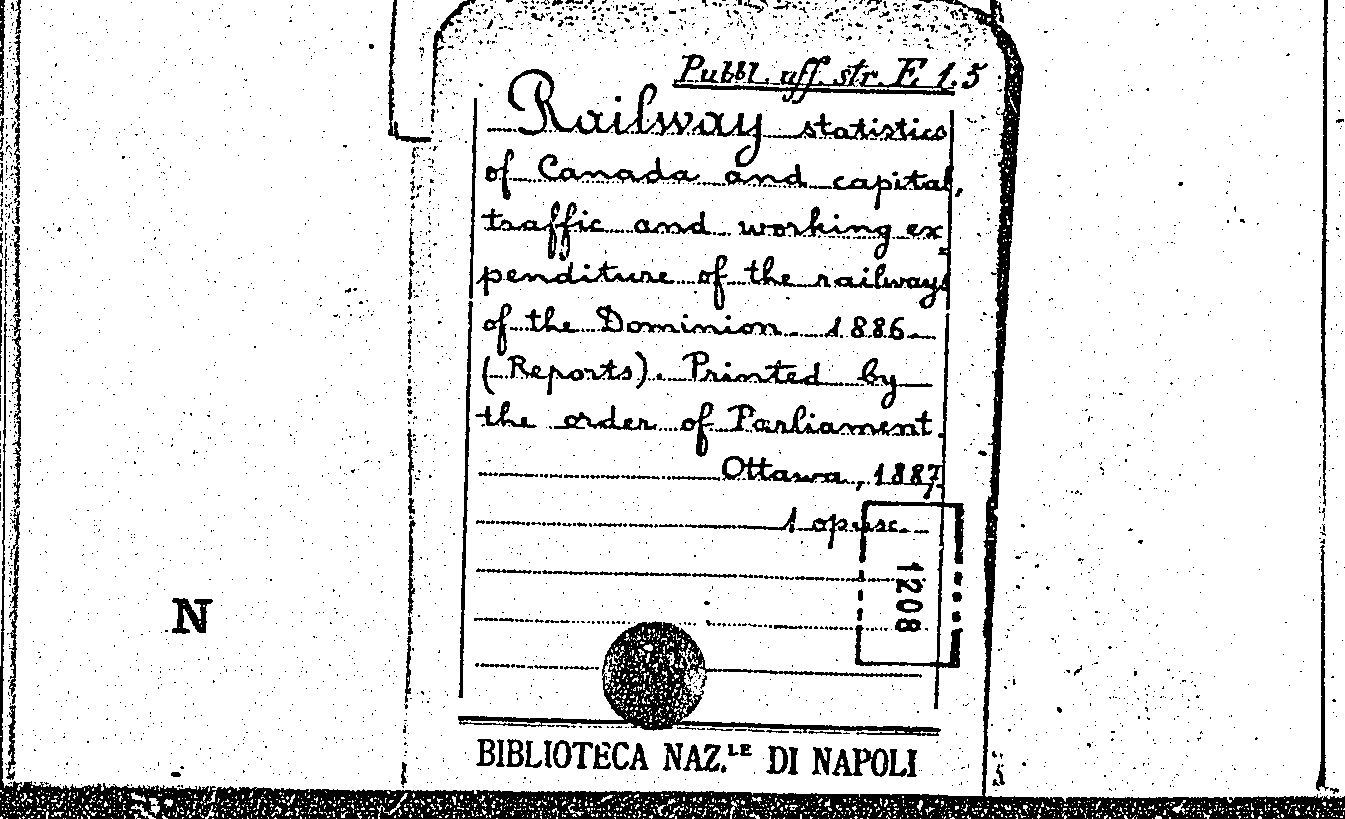 Pubbl. uff. str. E. 1.5
Railway statistics
of Canada and capital,
traffic and working ex=
penditure of the railways
of the Dominion. 1886.
(Reports). Printed by
the order of Parliament.
Ottawa, 1887.
1 opusc.
1208
N
BIBLIOTECA NAZ.LE DI NAPOLI